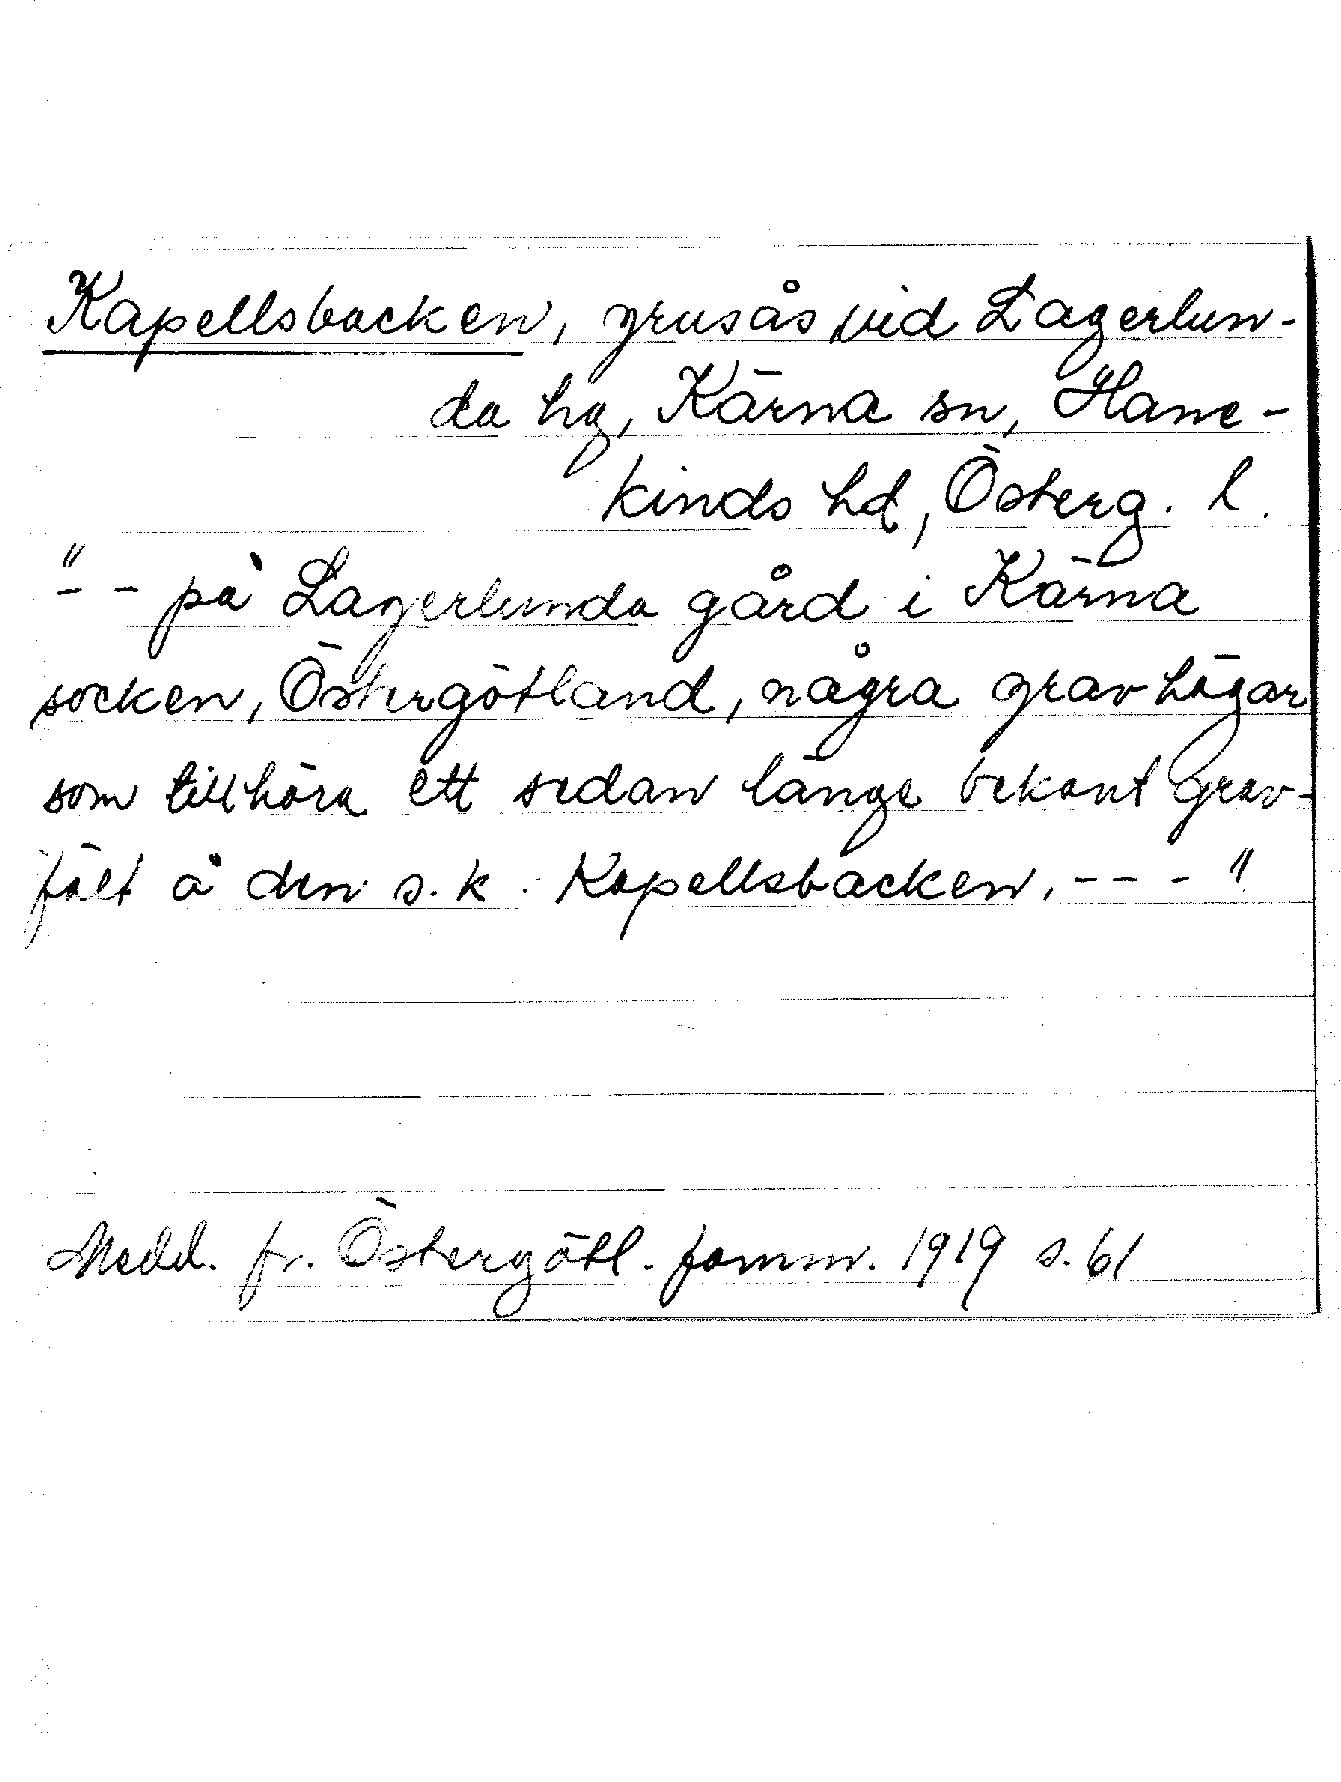 Kapellsbacken, grusås vid Lagerlun-
da hg, Kärna sn, Hane-
kinds hd, Österg. l.
"- - på Lagerlunda gård i Kärna
socken, Östergötland, några gravhögar
som tillhöra ett sedan länge bekant grav-
fält å den s.k. Kapellsbacken. - - - "
Medd. fr. Östergötl. fornm. 1919 s. 61